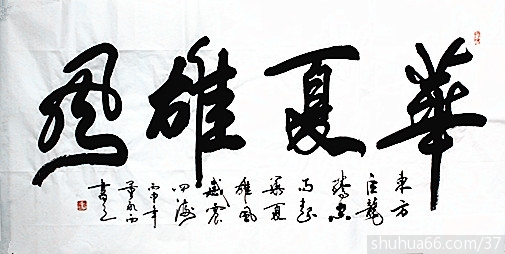 華夏雄風
東方
巨龍
騰空
而起
華夏
雄風
威震
四海
丙申年
書之
shuhua66.com/37